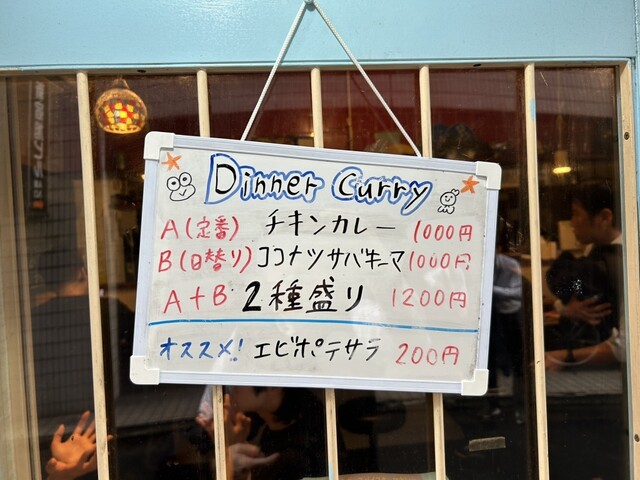 Dinner Curry
A(定番) チキンカレー 1000円
B(日替り) ココナツサバキーマ 1000円
A+B 2種盛り 1200円
オススメ! エビポテサラ 200円